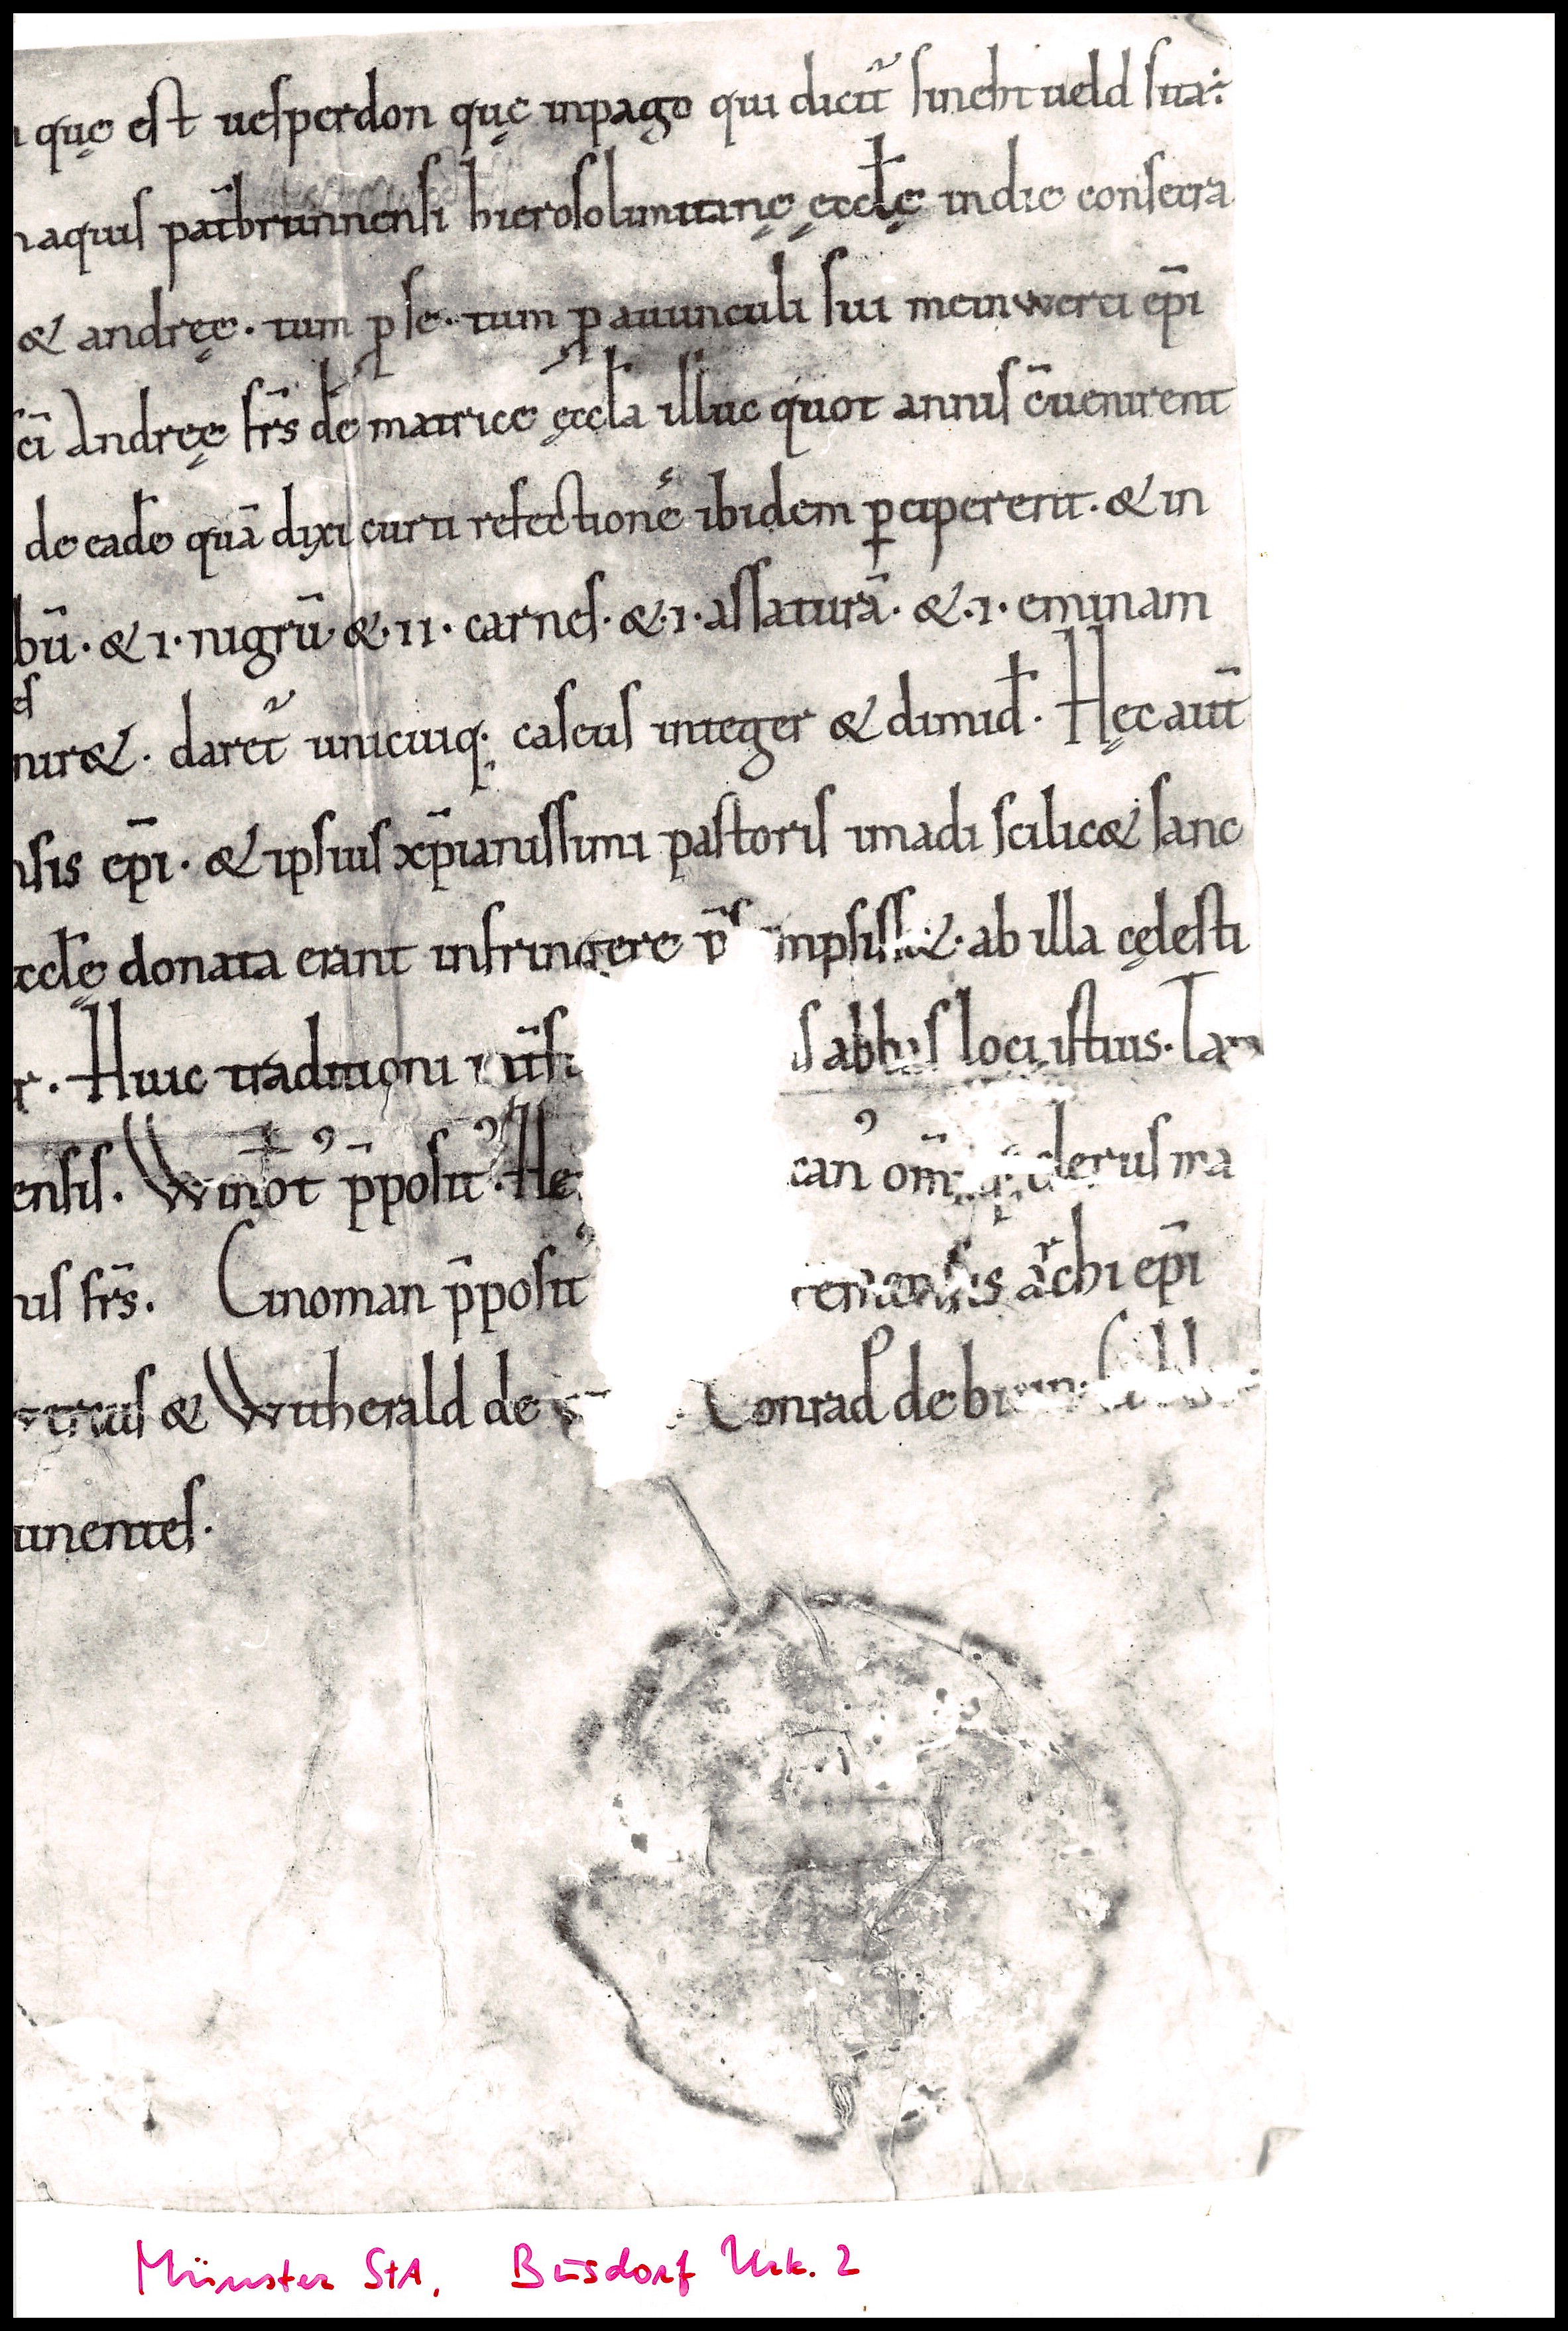 quę est uesperdon quę inpago qui dicit̃ sinehtueld sita:
aquis pat̄brunnensi hierosolimitanę ęccłę indie consecra
& andreę. tum p̱ se. tum p̱ auunculi sui meinwerci ep̄i
sc̄i Andreę fr̄s de matrice ęccła illuc quot annis c̄uenirent
de eadē quā dixi curti refectionē ibidem p̱ciperent. & in
bū. & I. nigrū & II. carnes. & .I. assaturā. & .I. eminam
nir&. daret̃ unicuiq; caseus integer & dimid̄. Hęc aut̄
nsis ep̄i. & ipsius xp̄ianissimi pastoris imadi scilic& sanc
ęccłę donata erant infringere ab illa cęlesti
Huic traditioni abbas loci istius. Tam
ensis. Winot̄ꝰ p̄posit̉. clerus ma
us fr̄s. Cinoman p̄posit̉ archi ep̄i
& Witherald de Conrad de
tinentes.
Münster StA, Busdorf Urk. 2